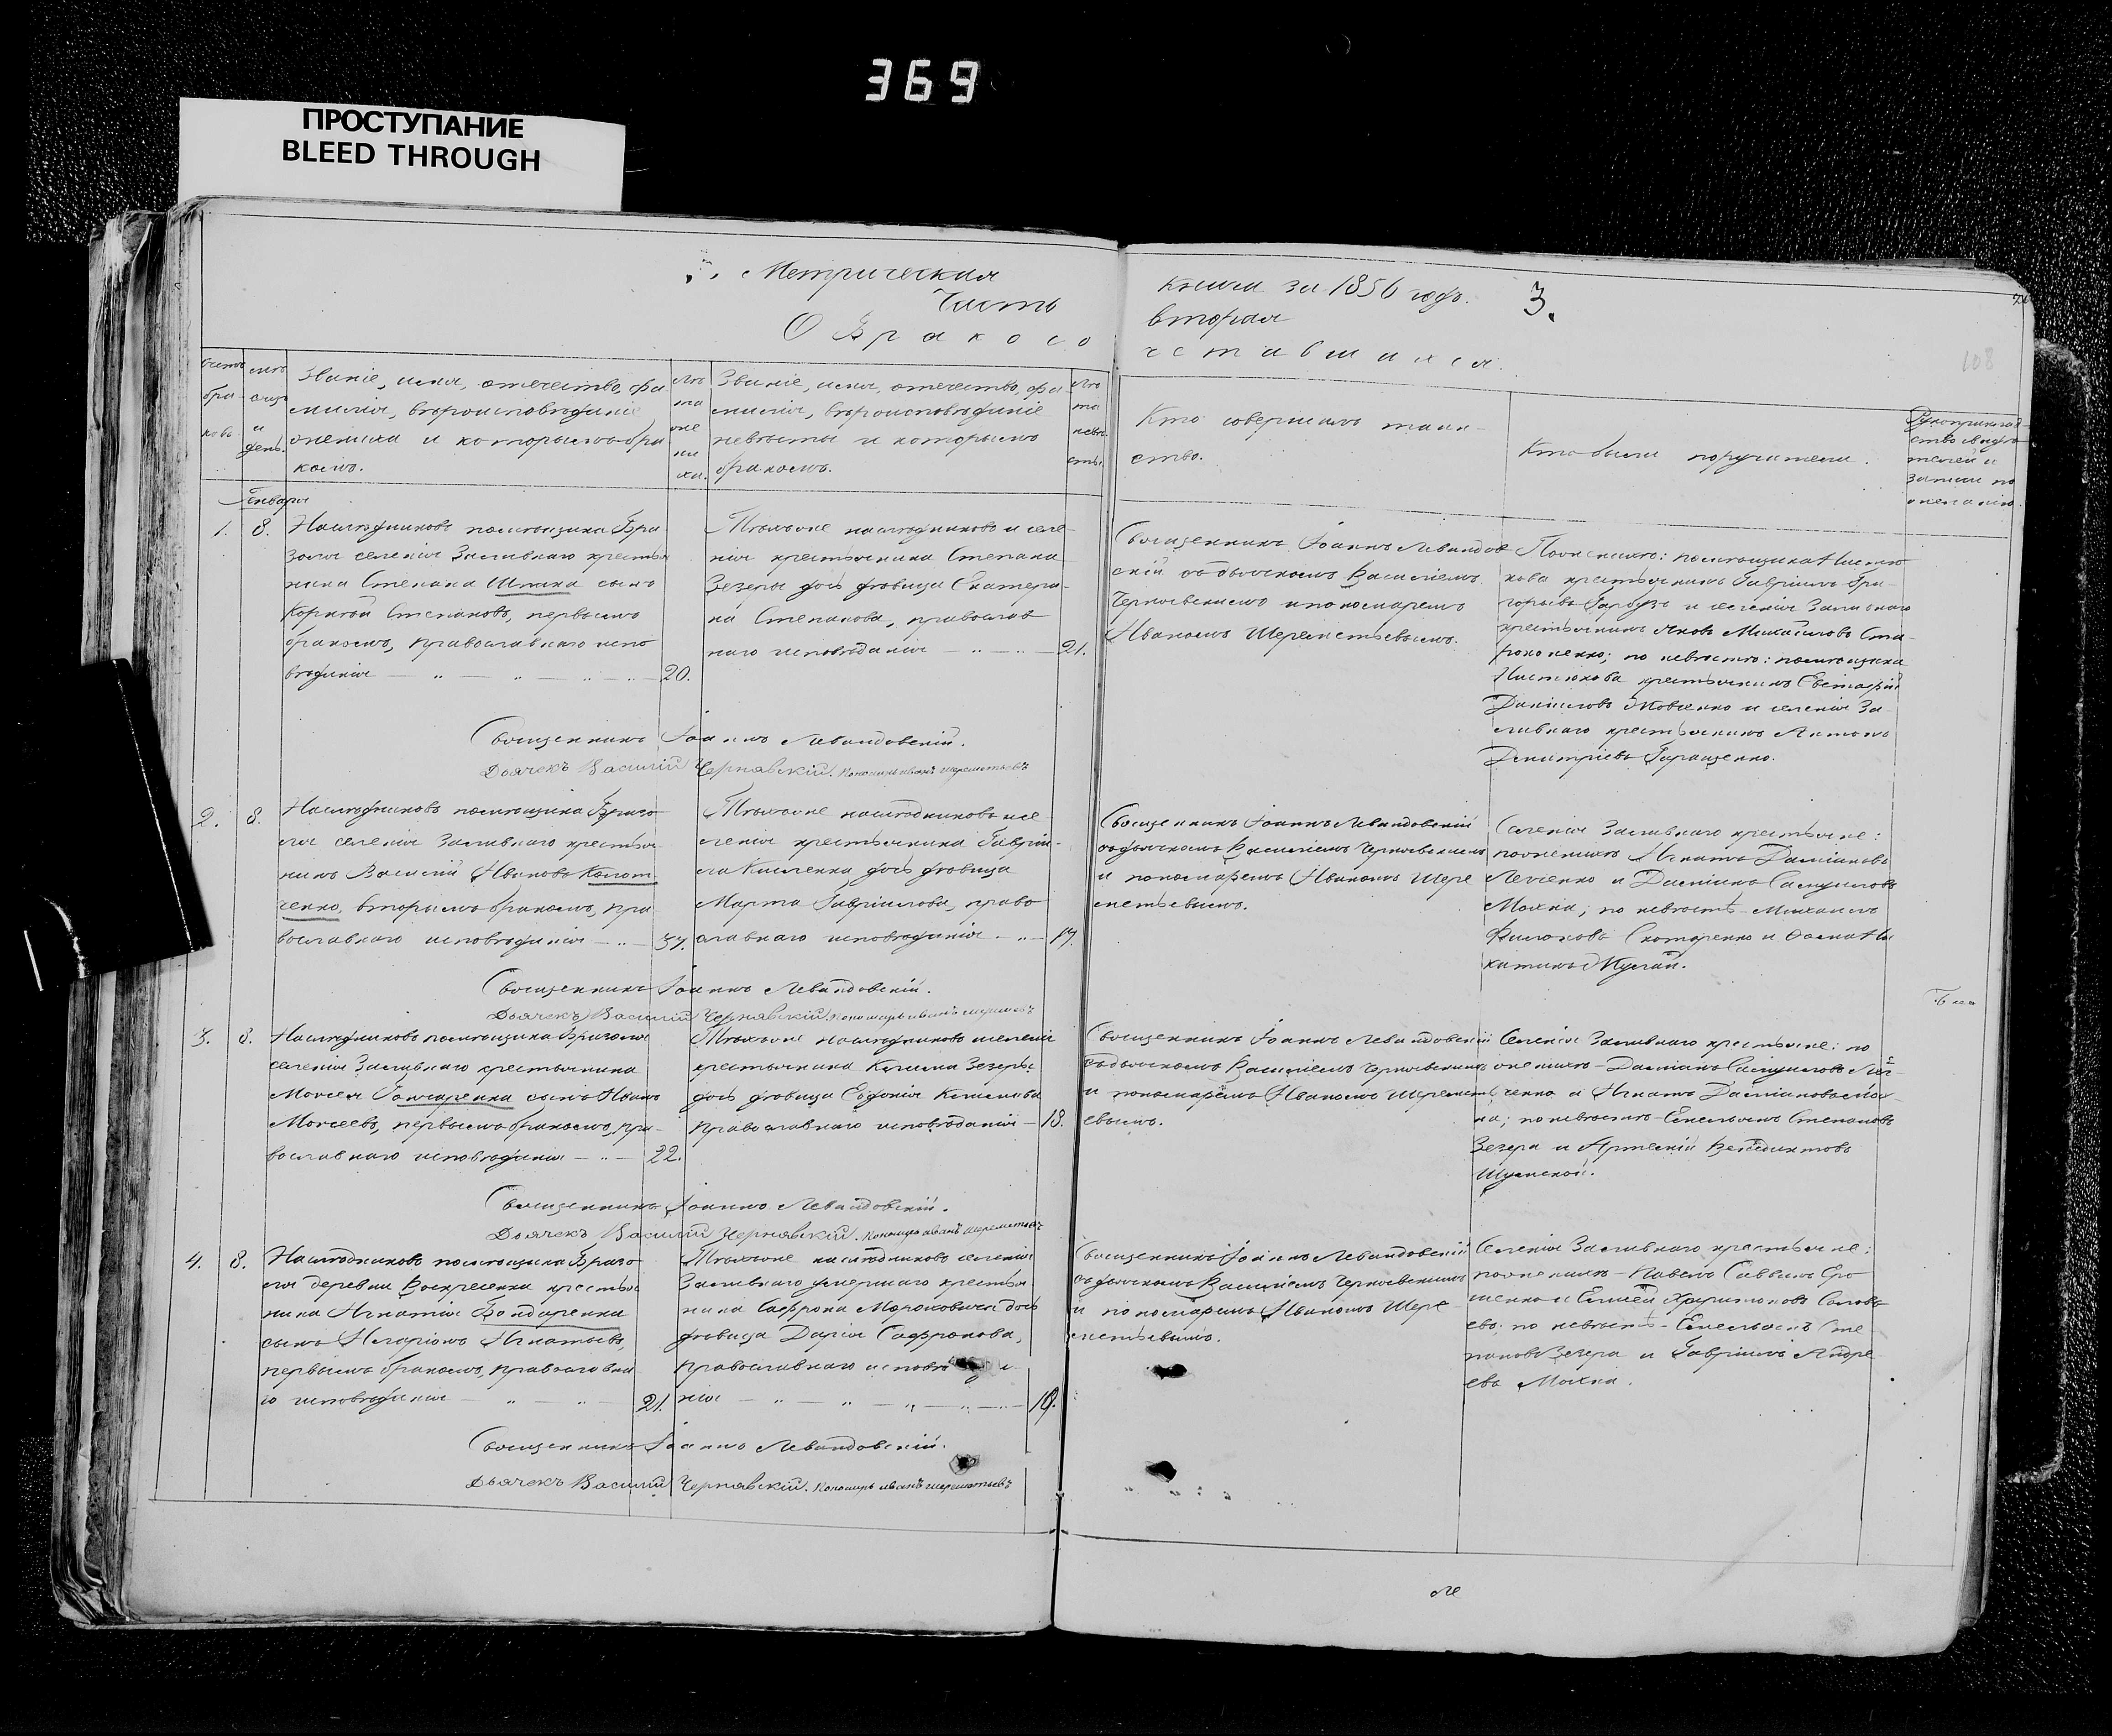 369
ПРОСТУПАНИЕ
BLEED THROUGH
Метрическая
Часть
О Бракосо
книга за 1856 годъ.
3.
вторая
четавшихся.
108
Счетъ
бра-
ковъ
и
день.
Званіе, имя, отечество, фа
милія, вѣроисповѣданіе
жениха и которымъ бра
комъ.
Лѣ
та
же
ни
ха.
Званіе, имя, отечество, фа
милія, вѣроисповѣданіе
невѣсты и которымъ
бракомъ.
Лѣ
та
невѣ
сты.
Кто совершалъ таин-
ство.
Кто были поручители.
Рукоприклад-
ство свидѣ
телей и
записи по
желанію.
Генварь
1.
8.
Наслѣдниковъ помѣщика
селенія Заливнаго крестья
нина Степана Шпака сынъ
Корнѣй Степановъ, первымъ
бракомъ, православнаго испо
вѣданія
20.
Тѣхъ же наслѣдниковъ и селе
нія крестьянина Степана
Зезеры дочь дѣвица Екатери-
на Степанова, православ
наго исповѣданія
21.
Священникъ Іоаннъ Левандов
скій съ дьячкомъ Василіемъ
Чернявскимъ и пономаремъ
Иваномъ Шереметьевымъ.
По женихѣ: помѣщика
крестьянинъ Гавріилъ Гри-
горьевъ и селенія Заливнаго
крестьянинъ Яковъ Михайловъ Ста-
роконенко; по невѣстѣ: помѣщика
крестьянинъ Евстафій
Даніиловъ Мовченко и селенія За-
ливнаго крестьянинъ Антонъ
Димитріевъ Геращенко.
Священникъ Іоаннъ Левандовскій.
Дьячекъ Василій Чернявскій. Пономарь иванъ шереметьевъ
2.
8.
Наслѣдниковъ помѣщика
селенія Заливнаго крестья
нинъ Василій Ивановъ
ченко, вторымъ бракомъ, пра
вославнаго исповѣданія
37.
Тѣхъ же наслѣдниковъ и се
ленія крестьянина Гаврі-
ила Кисленка дочь дѣвица
Марта Гавріилова, право
славнаго исповѣданія
17.
Священникъ Іоаннъ Левандовскій
съ дьячкомъ Василіемъ Чернявскимъ
и пономаремъ Иваномъ Шере
метьевымъ.
Селенія Заливнаго крестьяне:
по женихѣ Игнатъ Даміановъ
Левченко и Даміанъ Самуиловъ
Махна; по невѣстѣ - Михаилъ
Филоновъ Скотаренко и Ѳома Ни
китинъ
Священникъ Іоаннъ Левандовскій.
Дьячекъ Василій Чернявскій. Пономарь иванъ
3.
8.
Наслѣдниковъ помѣщика
селенія Заливнаго крестьянина
Моисея Гончаренка сынъ Иванъ
Моисеевъ, первымъ бракомъ, пра-
вославнаго исповѣданія
22.
Тѣхъ же наслѣдниковъ и селенія
крестьянина Климма Зезеры
дочь дѣвица Евфимія Климмова
православнаго исповѣданія
18.
Священникъ Іоаннъ Левандовскій
съ дьячкомъ Василіемъ Чернявскимъ
и пономаремъ Иваномъ Шереметь
евымъ.
Селенія Заливнаго крестьяне: по
женихѣ - Даміанъ Самуиловъ
и Игнатъ Даміановъ
по невѣстѣ - Емельянъ Степановъ
Зезера и Артемій Венедиктовъ
Шумской.
Священникъ Іоаннъ Левандовскій.
Дьячекъ Василій Чернявскій. Пономарь иванъ шереметьевъ
4.
8.
Наслѣдниковъ помѣщика
деревни Воскресенки крестья
нина Игнатія Бондаренка
сынъ Иларіонъ Игнатьевъ,
первымъ бракомъ, православна
го исповѣданія
21.
Тѣхъ же наслѣдниковъ селенія
Заливнаго умершаго крестья
нина Сафрона Мороховича дочь
дѣвица Дарія Сафронова,
православнаго исповѣда
нія
19.
Священникъ Іоаннъ Левандовскій
съ дьячкомъ Василіемъ Чернявскимъ
и пономаремъ Иваномъ Шере
метьевымъ.
Селенія Заливнаго крестьяне:
по женихѣ - Павелъ Саввинъ Ero
шенко и Елисей Харитоновъ Солов
евъ; по невѣстѣ - Емельянъ Сте
пановъ Зезера и Гавріилъ Андре
евъ Махна.
Священникъ Іоаннъ Левандовскій.
Дьячекъ Василій Чернявскій. Пономарь иванъ шереметьевъ